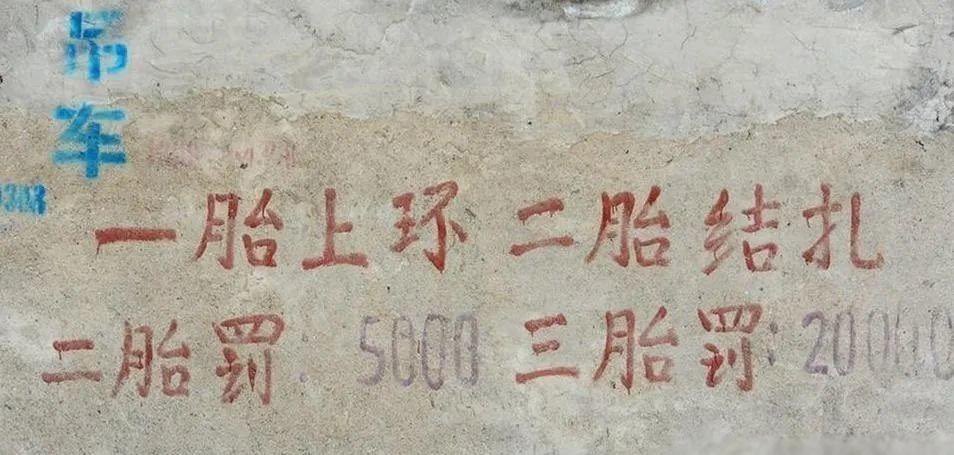 吊车
303
一胎上环 二胎结扎
二胎罚: 5000 三胎罚: 20000